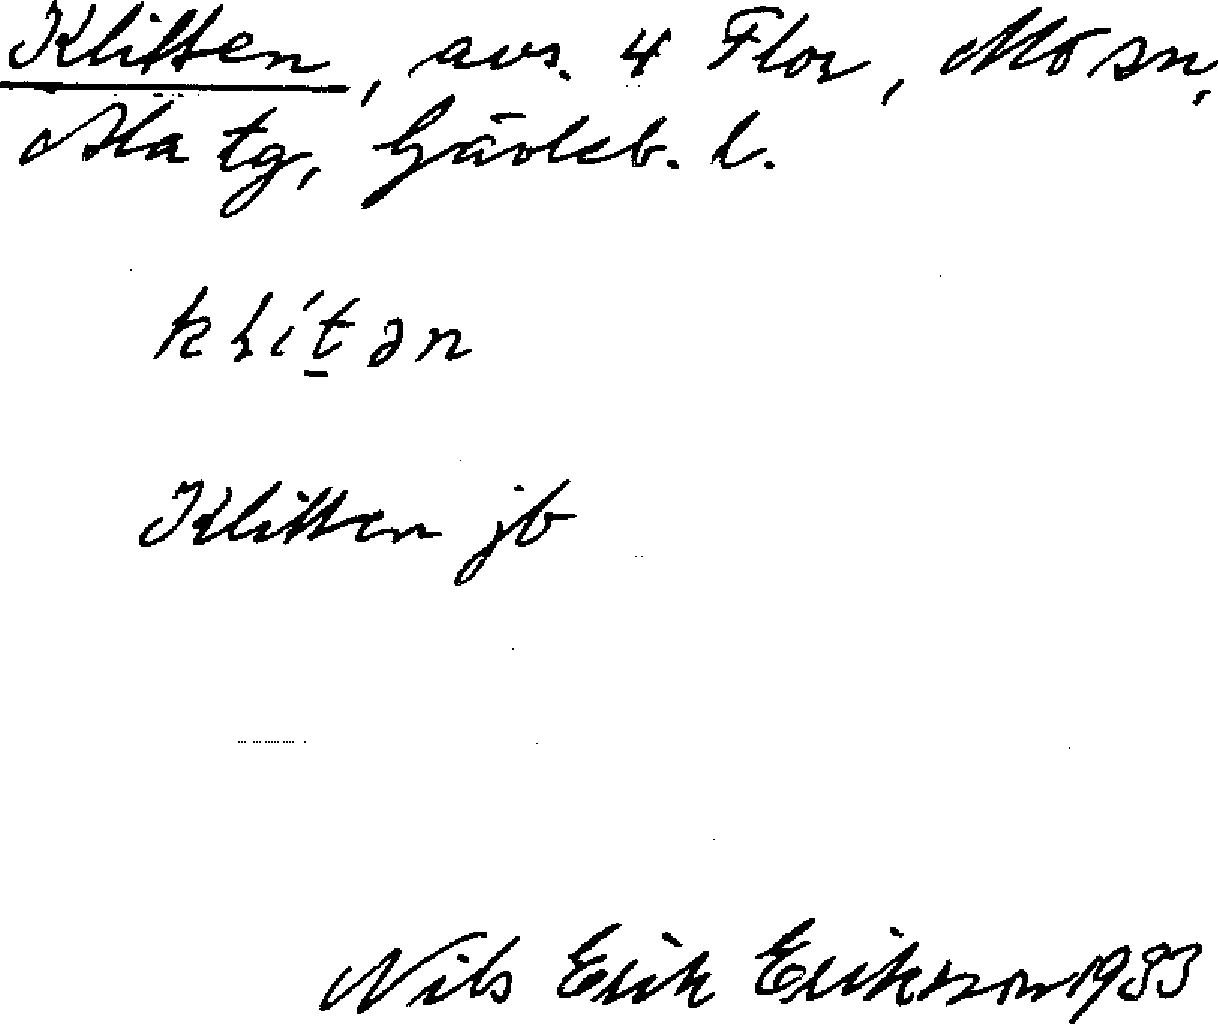 Klitten, avs. 4 Flor, Mo sn,
Ala tg, Gävleb. l.
klítən
Klitten jb
Nils Erik Erikson 1933